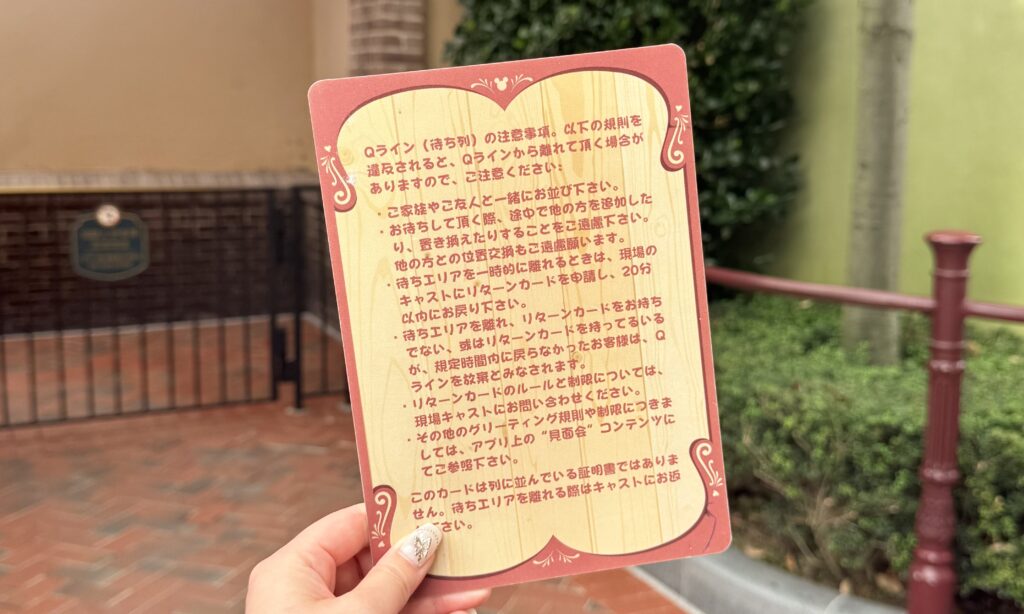 Qライン（待ち列）の注意事項。以下の規則を
違反されると、Qラインから離れて頂く場合が
ありますので、ご注意ください：
・ご家族やご友人と一緒にお並び下さい。
・お待ちして頂く際、途中で他の方を追加した
り、置き換えたりすることをご遠慮下さい。
他の方との位置交換もご遠慮願います。
・待ちエリアを一時的に離れるときは、現場の
キャストにリターンカードを申請し、20分
以内にお戻り下さい。
・待ちエリアを離れ、リターンカードをお持ち
でない、或はリターンカードを持ってるいる
が、規定時間内に戻らなかったお客様は、Q
ラインを放棄とみなされます。
・リターンカードのルールと制限については、
現場キャストにお問い合わせください。
・その他のグリーティング規則や制限につきま
しては、アプリ上の“見面会”コンテンツに
てご参照下さい。
このカードは列に並んでいる証明書ではありま
せん。待ちエリアを離れる際はキャストにお返
下さい。